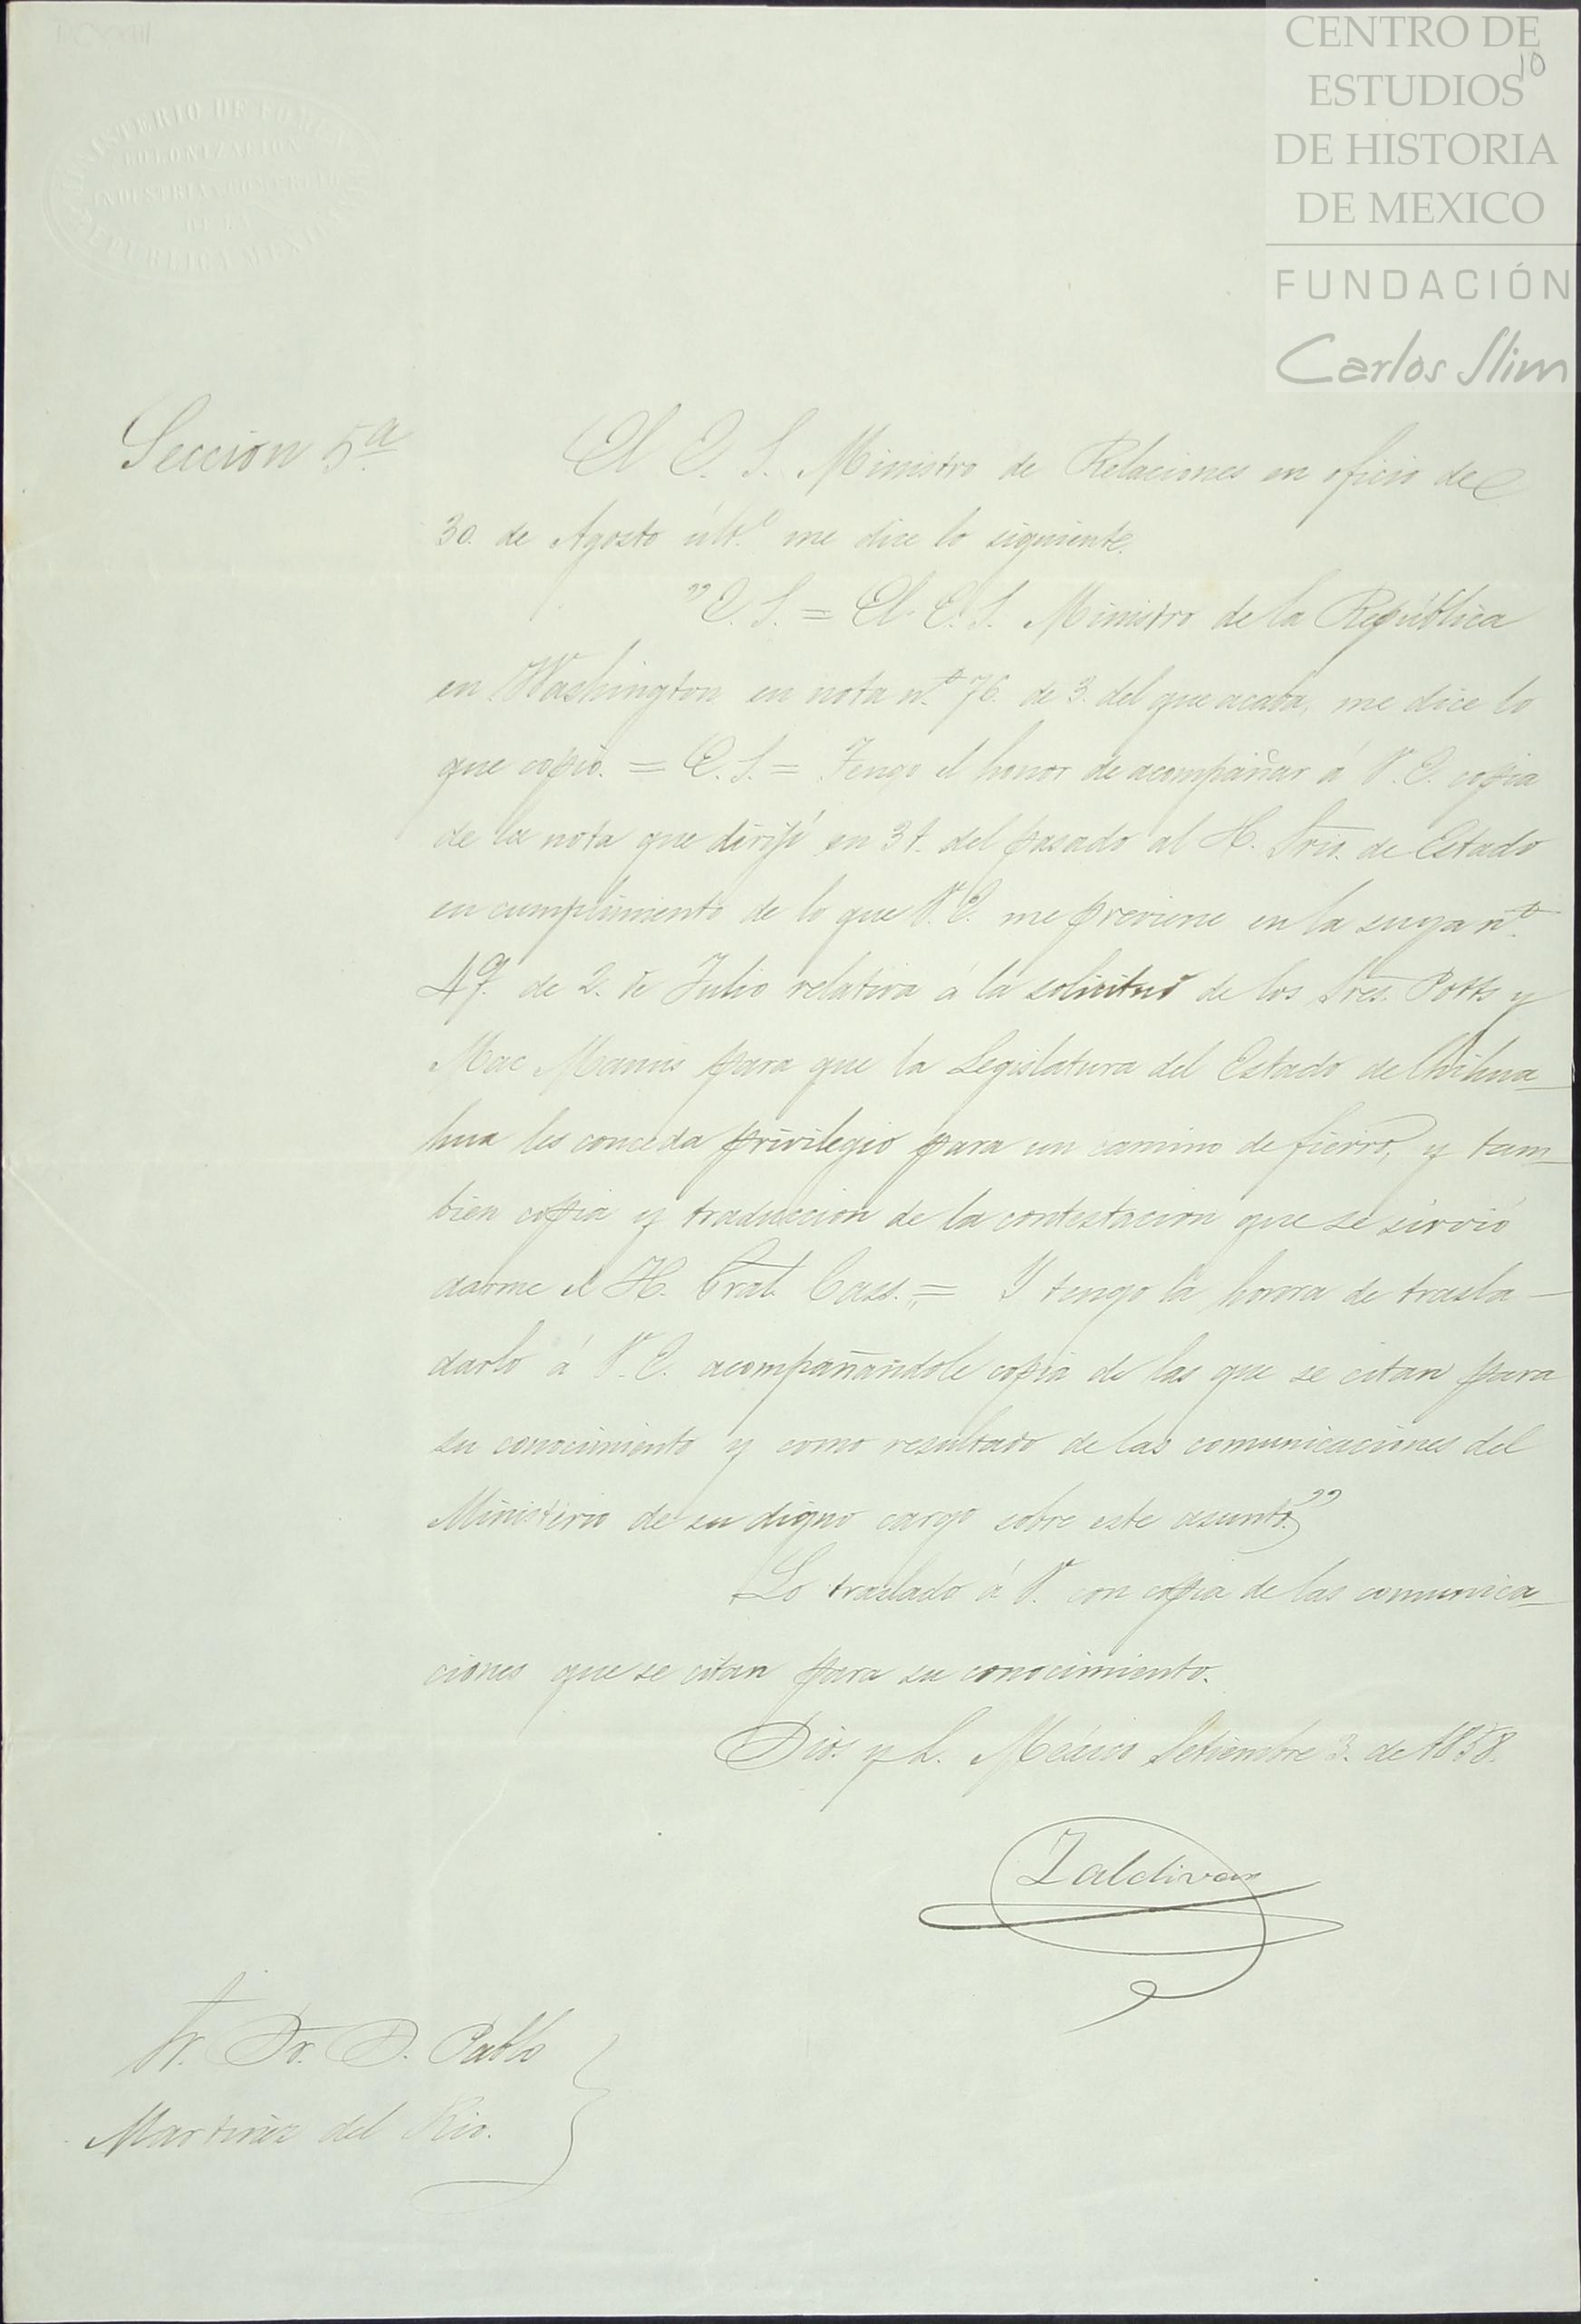 CENTRO DE
ESTUDIOS
DE HISTORIA
DE MEXICO
FUNDACIÓN
Carlos Slim
10
MINISTERIO DE FOMENTO
COLONIZACION
INDUSTRIA Y COMERCIO
DE LA
REPUBLICA MEXICANA
Seccion 5ª
El E. S. Ministro de Relaciones en oficio de
30. de Agosto últº me dice lo siguiente.
"E. S. = El E. S. Ministro de la República
en Washington en nota nº 76. de 3. del que acaba, me dice lo
que copio. = E. S. = Tengo el honor de acompañar á V. E. copia
de la nota que dirijí en 31. del pasado al H. Srio. de Estado
en cumplimiento de lo que V. E. me previene en la suya nº
49. de 2. de Julio relativa á la solicitud de los Sres. Potts y
Mac Manus para que la Legislatura del Estado de Chihua-
hua les conceda privilegio para un camino de fierro, y tam-
bien copia y traduccion de la contestacion que se sirvió
darme el H. Gral. Cass. = Y tengo la honra de trasla-
darlo á V. E. acompañandole copia de las que se citan para
su conocimiento y como resultado de las comunicaciones del
Ministerio de su digno cargo sobre este asunto."
Lo traslado á V. con copia de las comunica-
ciones que se citan para su conocimiento.
Dios y L. México Setiembre 3. de 1858.
Zaldivar
Sr. Dr. D. Pablo
Martinez del Rio.